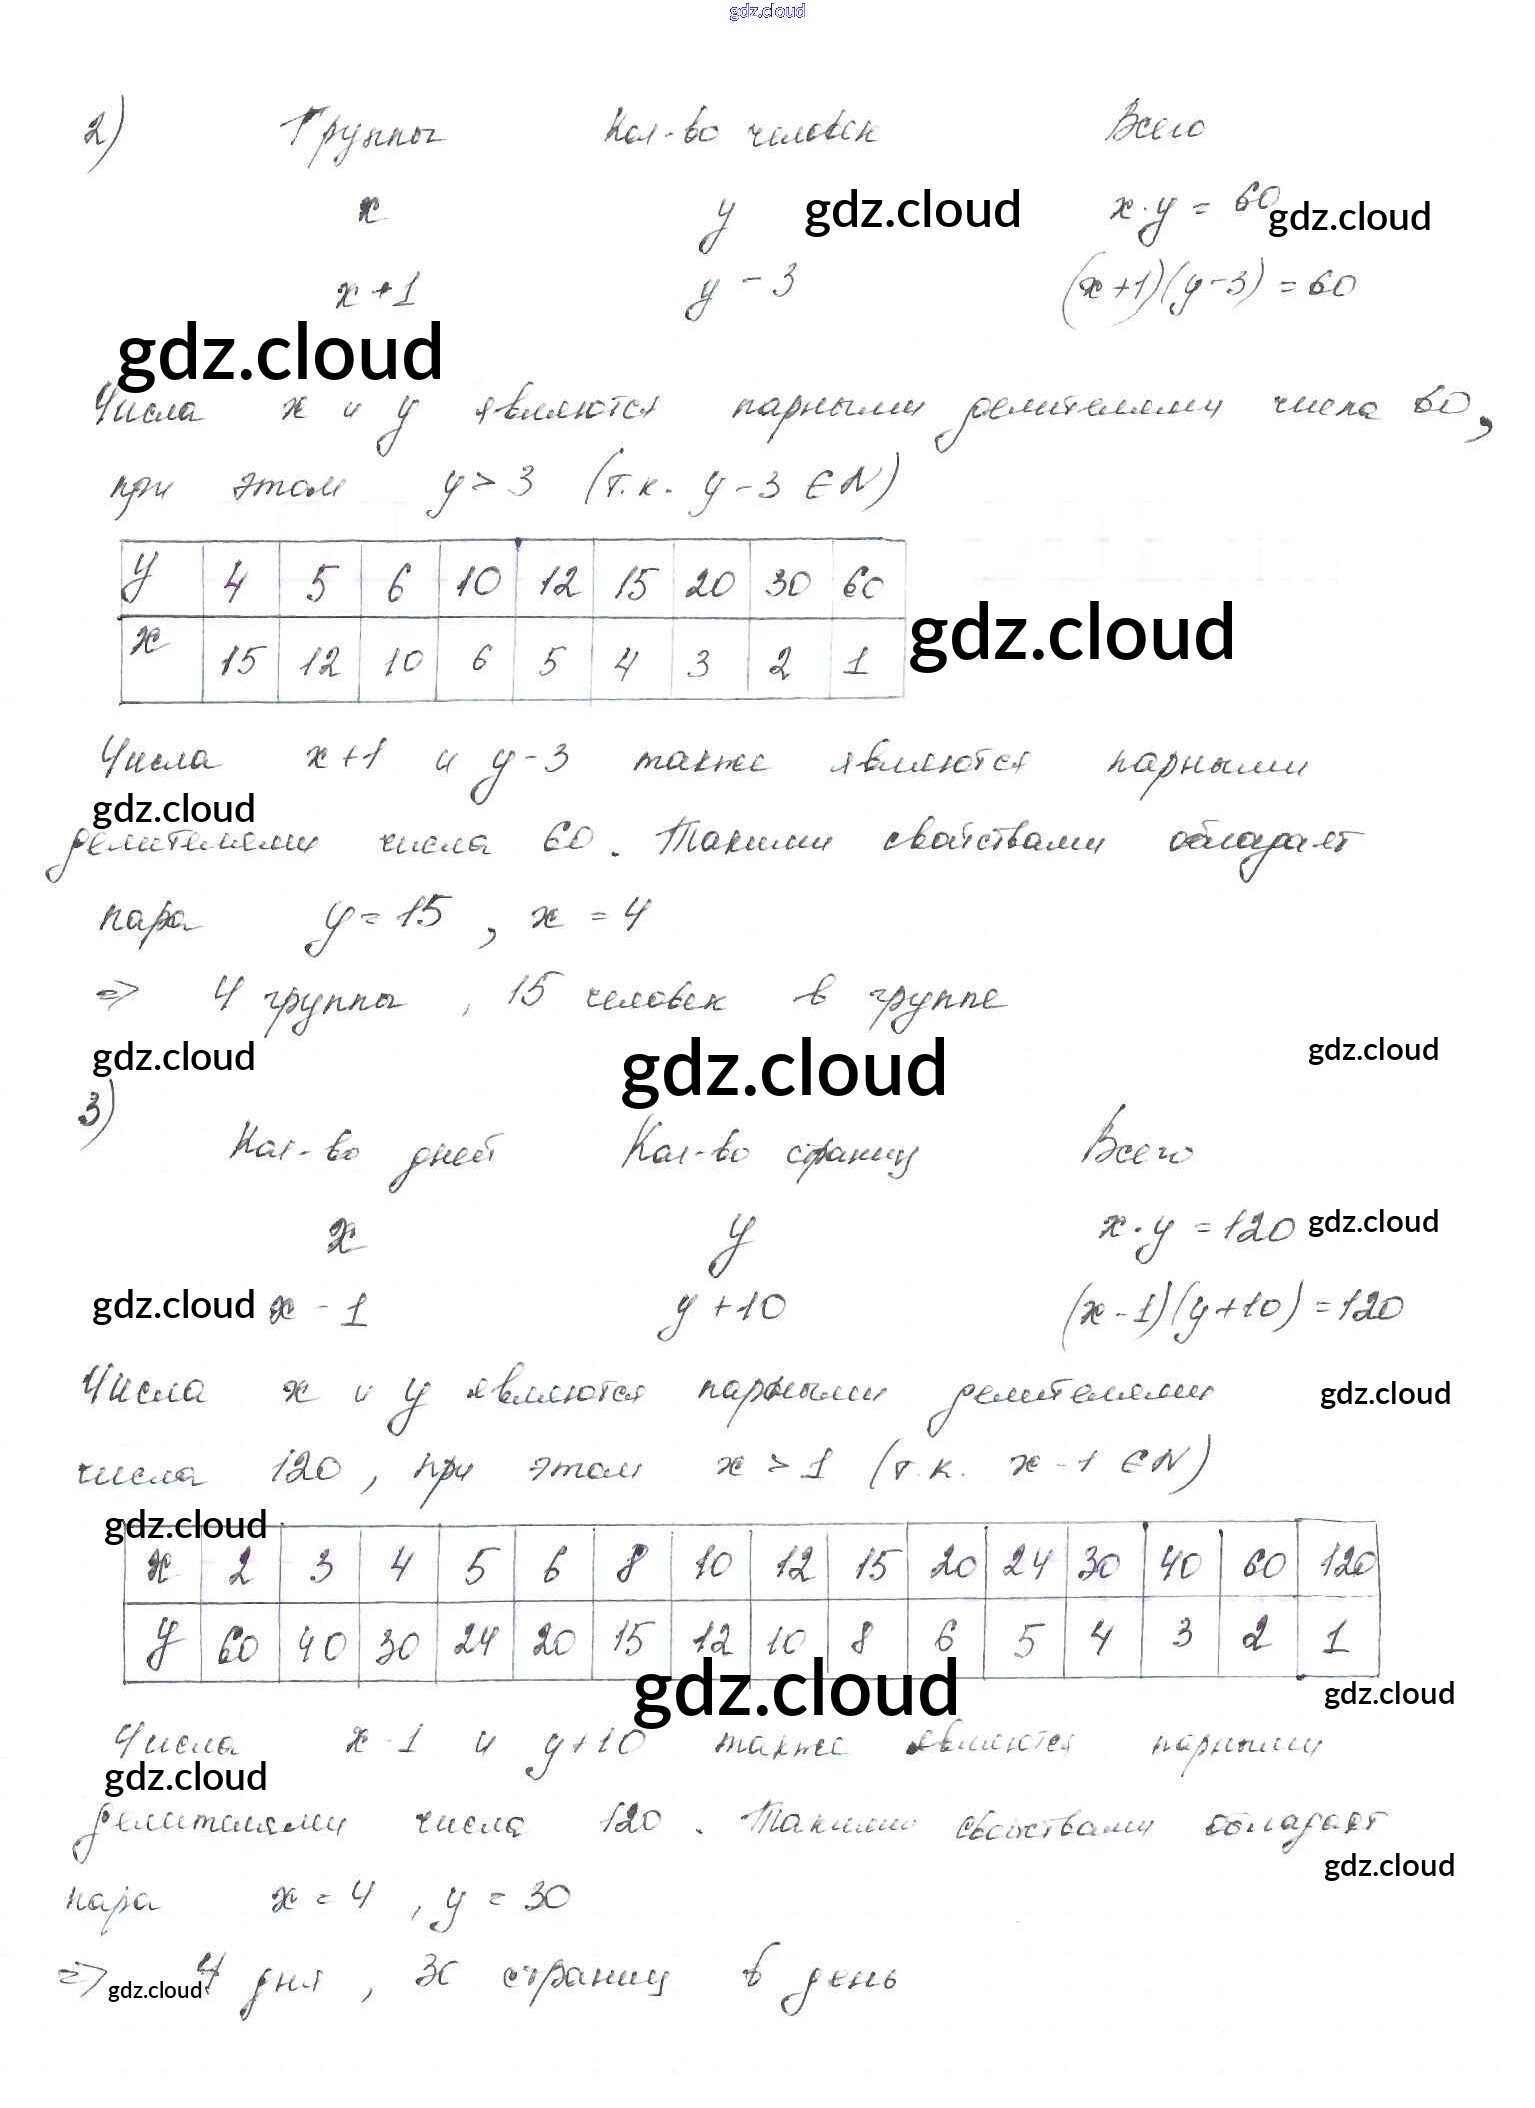 gdz.cloud
2) Группы Кол-во человек Всего
x y gdz.cloud x·y = 60 gdz.cloud
x+1 y-3 (x+1)(y-3) = 60
gdz.cloud
Числа x и y являются парными делителями числа 60,
при этом y > 3 (т.к. y-3 ∈ N)
y 4 5 6 10 12 15 20 30 60
x 15 12 10 6 5 4 3 2 1
gdz.cloud
Числа x+1 и y-3 также являются парными
gdz.cloud
делителями числа 60. Такими свойствами обладает
пара y = 15, x = 4
=> 4 группы, 15 человек в группе
gdz.cloud gdz.cloud gdz.cloud
3)
Кол-во дней Кол-во страниц Всего
x y x·y = 120 gdz.cloud
gdz.cloud x - 1 y + 10 (x-1)(y+10) = 120
Числа x и y являются парными делителями gdz.cloud
числа 120, при этом x > 1 (т.к. x-1 ∈ N)
gdz.cloud
x 2 3 4 5 6 8 10 12 15 20 24 30 40 60 120
y 60 40 30 24 20 15 12 10 8 6 5 4 3 2 1
gdz.cloud gdz.cloud
Числа x-1 и y+10 также являются парными
gdz.cloud
делителями числа 120. Такими свойствами обладает
gdz.cloud
пара x = 4, y = 30
=> gdz.cloud 4 дня, 30 страниц в день